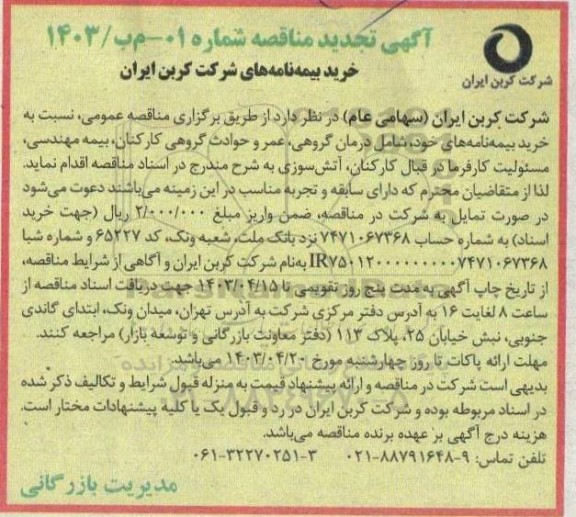 آگهی تجدید مناقصه شماره ۰۱-م‌ب/۱۴۰۳
خرید بیمه‌نامه‌های شرکت کربن ایران
شرکت کربن ایران
شرکت کربن ایران (سهامی عام) در نظر دارد از طریق برگزاری مناقصه عمومی، نسبت به
خرید بیمه‌نامه‌های خود، شامل درمان گروهی، عمر و حوادث گروهی کارکنان، بیمه مهندسی،
مسئولیت کارفرما در قبال کارکنان، آتش‌سوزی به شرح مندرج در اسناد مناقصه اقدام نماید.
لذا از متقاضیان محترم که دارای سابقه و تجربه مناسب در این زمینه می‌باشند دعوت می‌شود
در صورت تمایل به شرکت در مناقصه، ضمن واریز مبلغ ۲/۰۰۰/۰۰۰ ریال (جهت خرید
اسناد) به شماره حساب ۷۴۷۱۰۶۷۳۶۸ نزد بانک ملت، شعبه ونک، کد ۶۵۲۲۷ و شماره شبا
IR۷۵۰۱۲۰۰۰۰۰۰۰۰۰۰۷۴۷۱۰۶۷۳۶۸ به‌نام شرکت کربن ایران و آگاهی از شرایط مناقصه،
از تاریخ چاپ آگهی به مدت پنج روز تقویمی تا ۱۴۰۳/۰۴/۱۵ جهت دریافت اسناد مناقصه از
ساعت ۸ لغایت ۱۶ به آدرس دفتر مرکزی شرکت به آدرس تهران، میدان ونک، ابتدای گاندی
جنوبی، نبش خیابان ۲۵، پلاک ۱۱۳ (دفتر معاونت بازرگانی و توسعه بازار) مراجعه کنند.
مهلت ارائه پاکات تا روز چهارشنبه مورخ ۱۴۰۳/۰۴/۲۰ می‌باشد.
بدیهی است شرکت در مناقصه و ارائه پیشنهاد قیمت به منزله قبول شرایط و تکالیف ذکر شده
در اسناد مربوطه بوده و شرکت کربن ایران در رد و قبول یک یا کلیه پیشنهادات مختار است.
هزینه درج آگهی بر عهده برنده مناقصه می‌باشد.
تلفن تماس: ۹-۸۸۷۹۱۶۴۸-۰۲۱ ۳-۳۲۲۷۰۲۵۱-۰۶۱
مدیریت بازرگانی